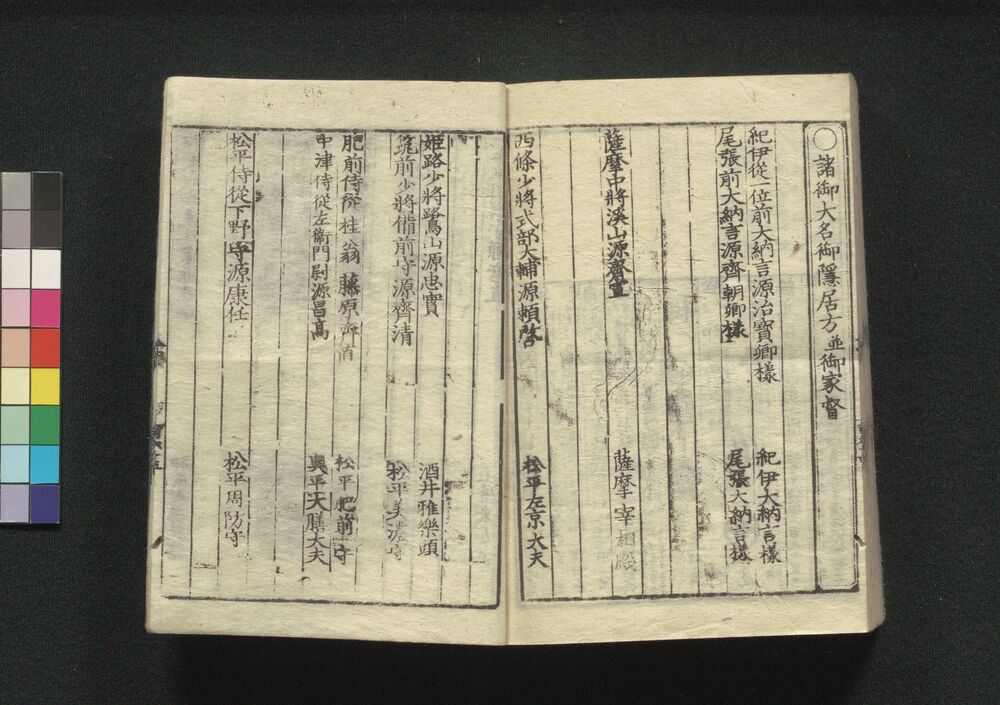 ○諸御大名御隱居方並御家督
紀伊從一位前大納言源治寶卿樣　紀伊大納言樣
尾張前大納言源齊朝卿樣　尾張大納言樣
薩摩中將溪山源齊宣　薩摩宰相殿
西條少將式部大輔源頼啓　松平左京大夫
姫路少將鷺山源忠實　酒井雅樂頭
筑前少將備前守源齊清　松平美濃守
肥前侍從桂翁藤原齊直　松平肥前守
中津侍從左衞門尉源昌高　奥平大膳大夫
松平侍從下野守源康任　松平周防守